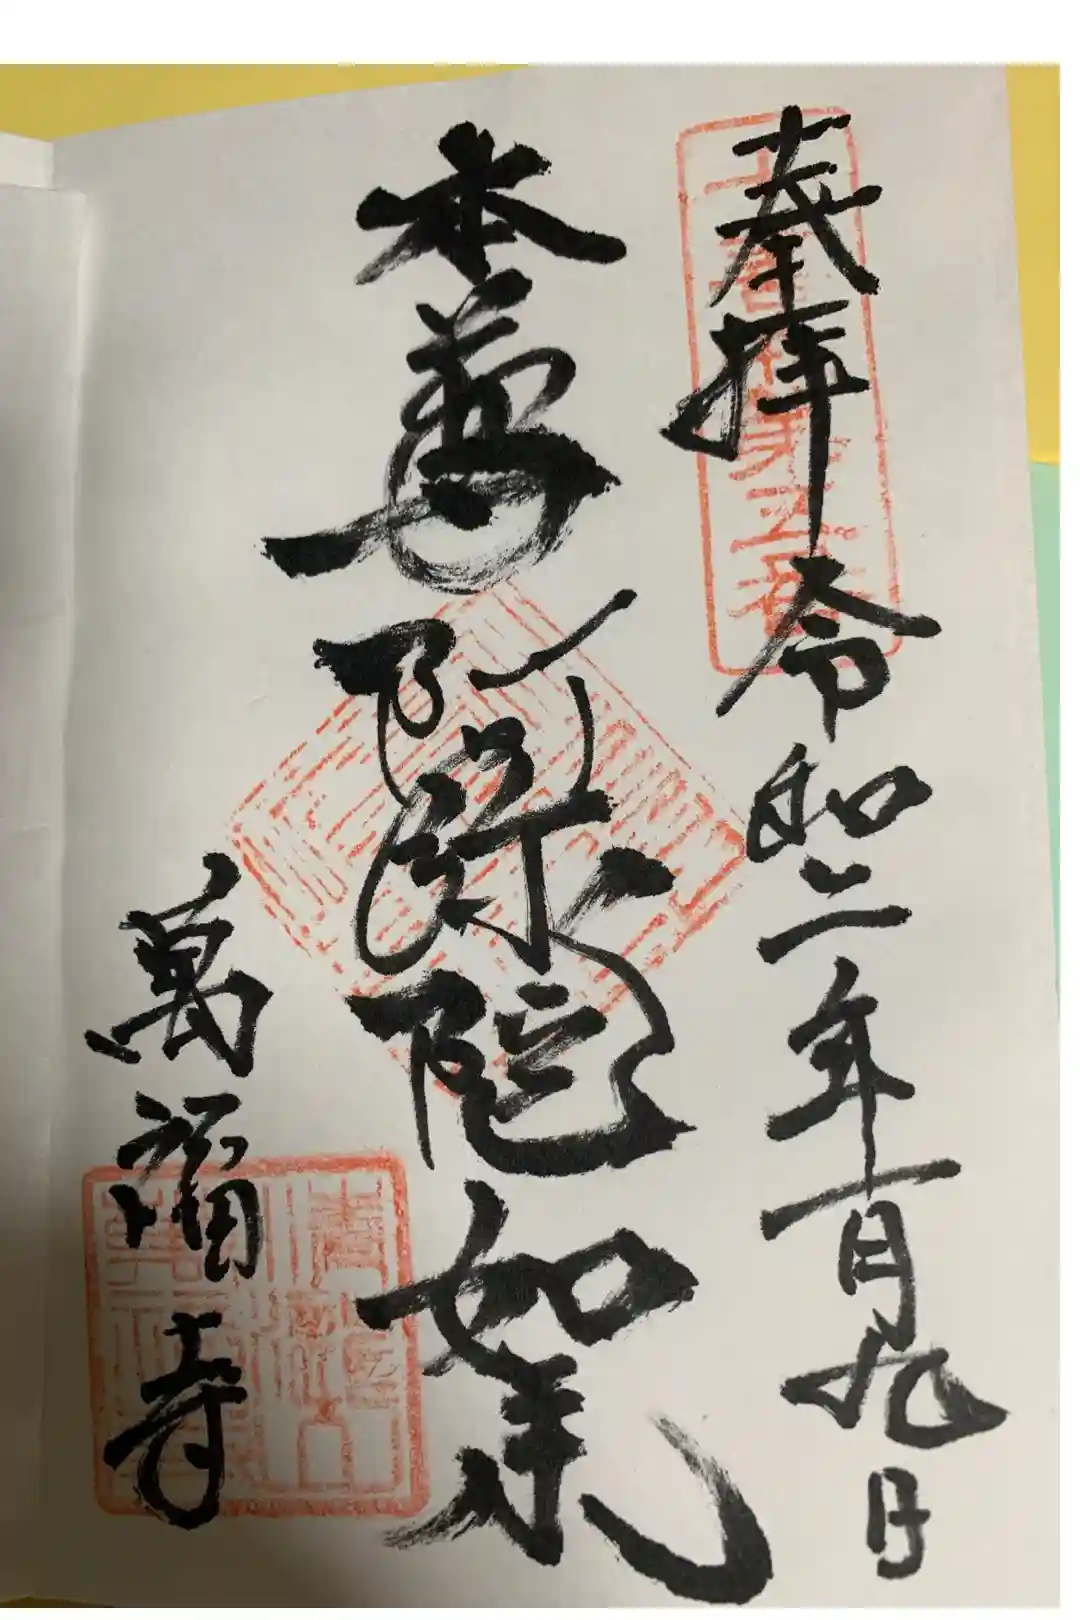 奉拝 令和二年一月九日
本尊 阿弥陀如来
萬福寺